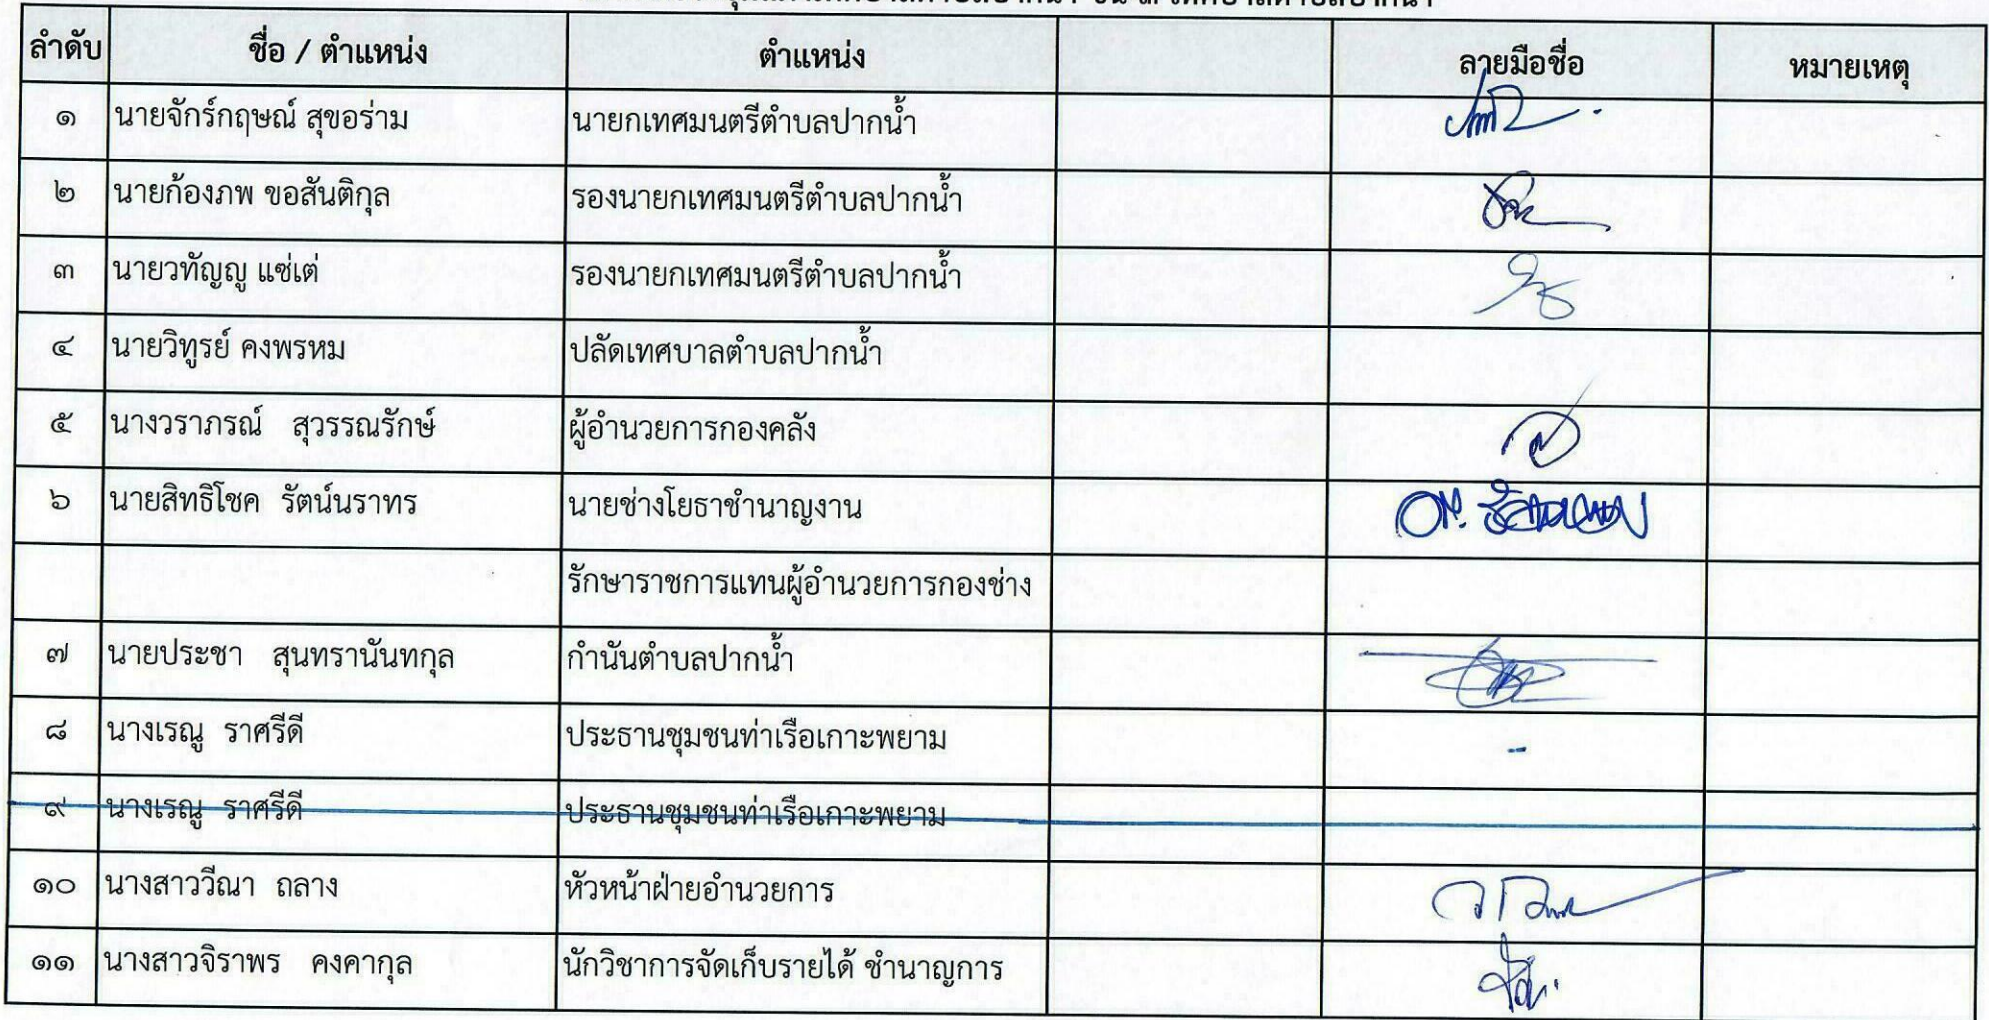 ลำดับ ชื่อ / ตำแหน่ง ตำแหน่ง ลายมือชื่อ หมายเหตุ
๑ นายจักร์กฤษณ์ สุขอร่าม นายกเทศมนตรีตำบลปากน้ำ
๒ นายก้องภพ ขอสันติกุล รองนายกเทศมนตรีตำบลปากน้ำ
๓ นายวทัญญู แซ่เต่ รองนายกเทศมนตรีตำบลปากน้ำ
๔ นายวิทูรย์ คงพรหม ปลัดเทศบาลตำบลปากน้ำ
๕ นางวราภรณ์ สุวรรณรักษ์ ผู้อำนวยการกองคลัง
๖ นายสิทธิโชค รัตน์นราทร นายช่างโยธาชำนาญงาน
รักษาราชการแทนผู้อำนวยการกองช่าง
๗ นายประชา สุนทรานันทกุล กำนันตำบลปากน้ำ
๘ นางเรณู ราศรีดี ประธานชุมชนท่าเรือเกาะพยาม -
๙ นางเรณู ราศรีดี ประธานชุมชนท่าเรือเกาะพยาม
๑๐ นางสาววีณา ถลาง หัวหน้าฝ่ายอำนวยการ
๑๑ นางสาวจิราพร คงคากุล นักวิชาการจัดเก็บรายได้ ชำนาญการ